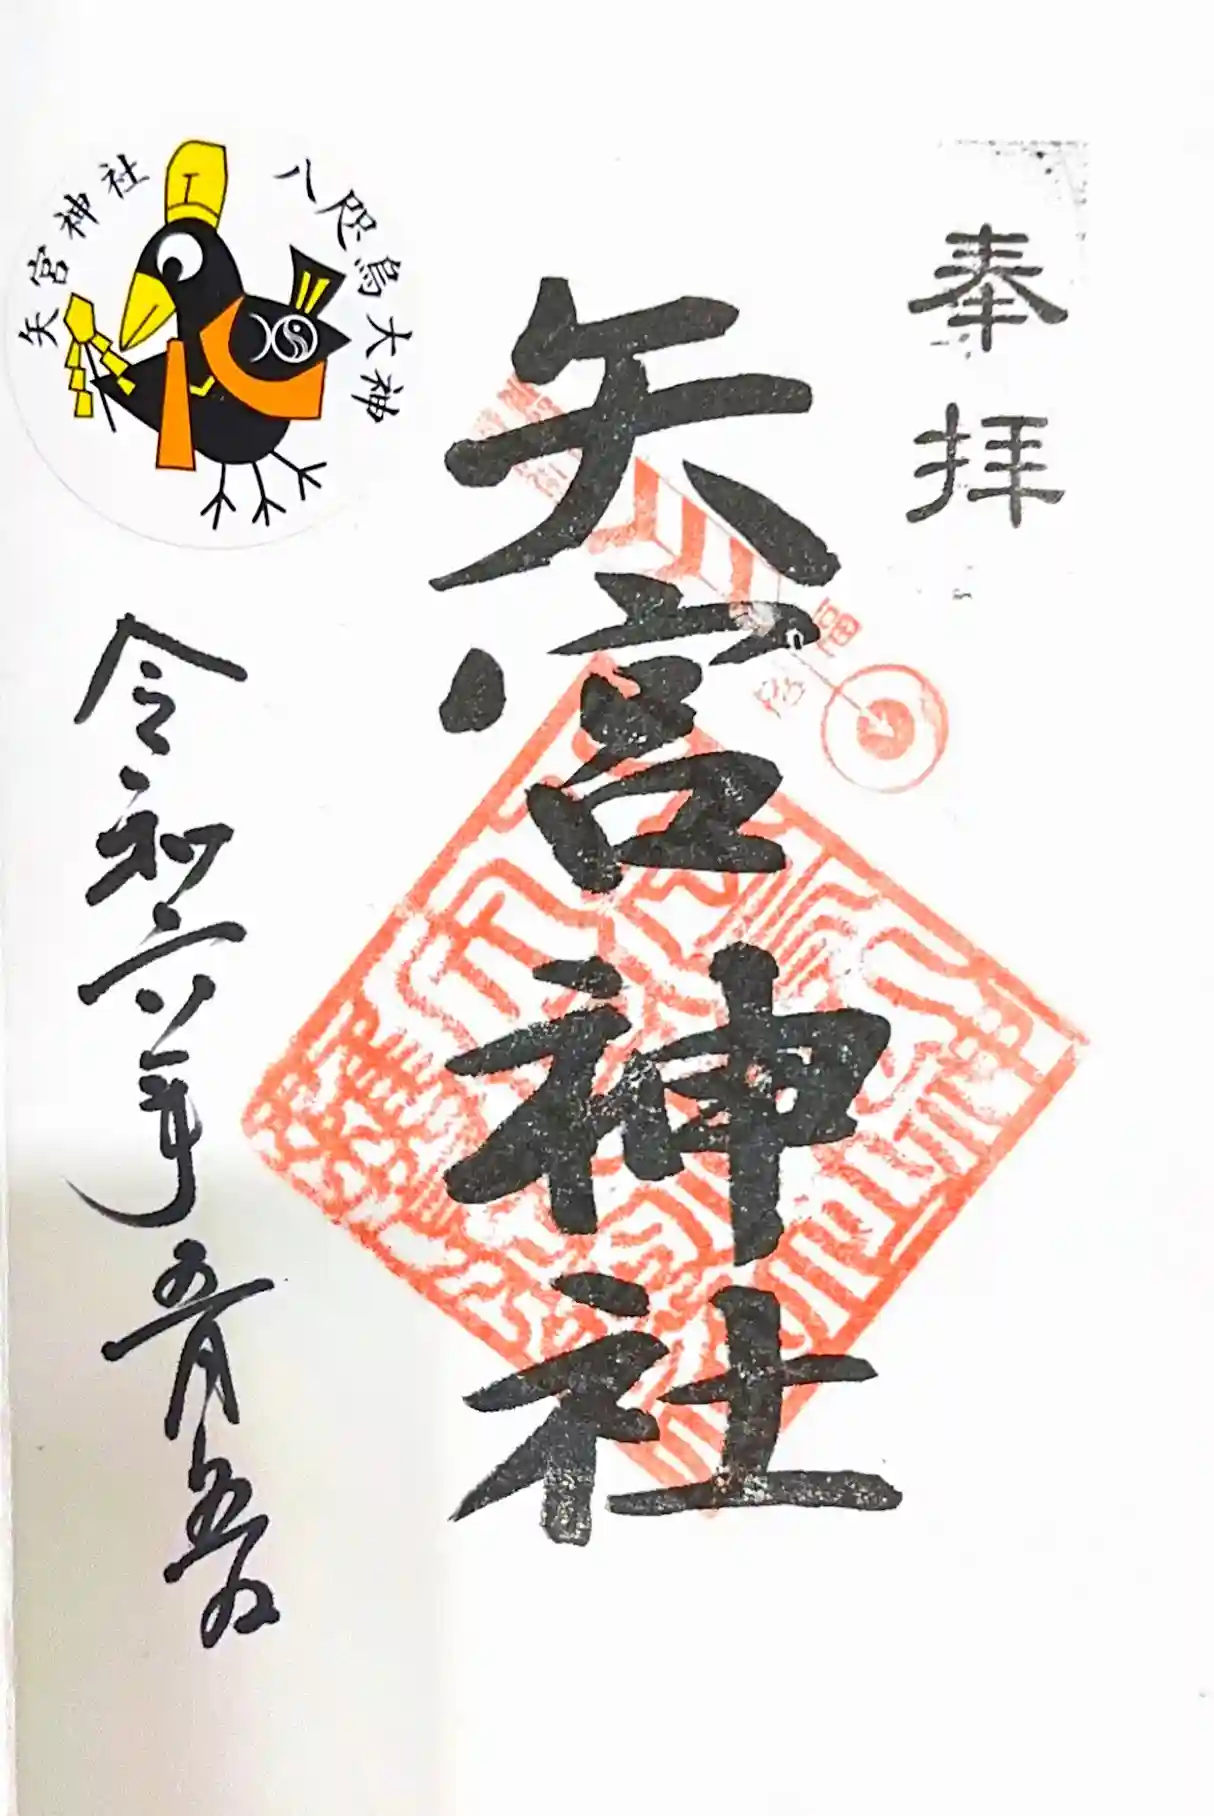 奉拝
矢宮神社
八咫烏大神
矢宮神社
令和六年五月五日